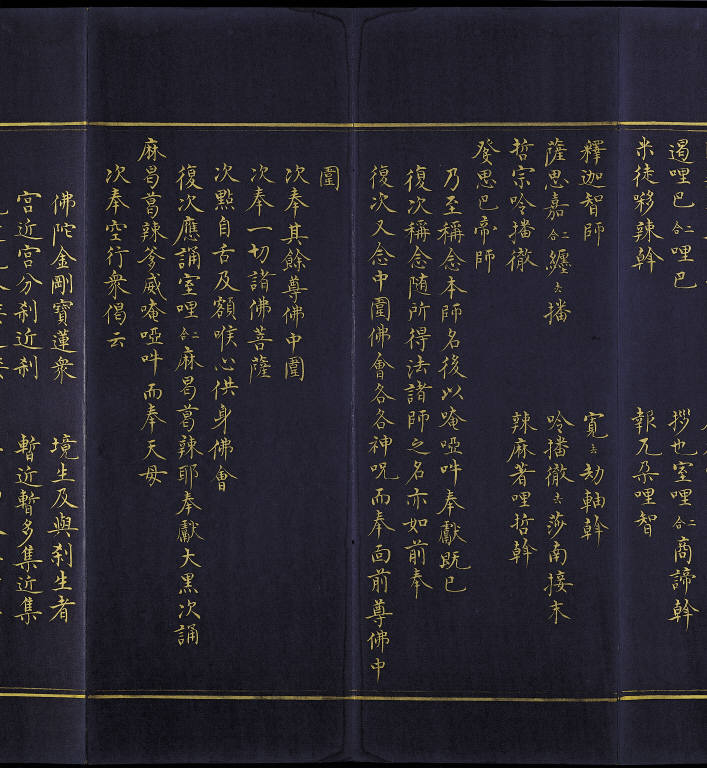 遏哩巴合二哩巴
拶也室哩合二商諦幹
米徒哆辣幹
報兀朵哩智
釋迦智師
寬去劫軸幹
薩思嘉合二纏去播
呤播徹去莎南接末
哲宗呤播徹
辣麻著哩哲幹
發思巴帝師
乃至稱念本師名後以唵啞吽奉獻既已
復次稱念随所得法諸師之名亦如前奉
復次又念中圍佛會各各神呪而奉面前尊佛中
圍
次奉其餘尊佛中圍
次奉一切諸佛菩薩
次㸃自舌及額喉心供身佛會
復次應誦室哩合二麻曷葛辣耶奉獻大黑次誦
麻曷葛辣爹威唵啞吽而奉天母
次奉空行衆偈云
佛陀金剛寳蓮衆
境生及與刹生者
宫近宫分刹近刹
暫近暫多集近集